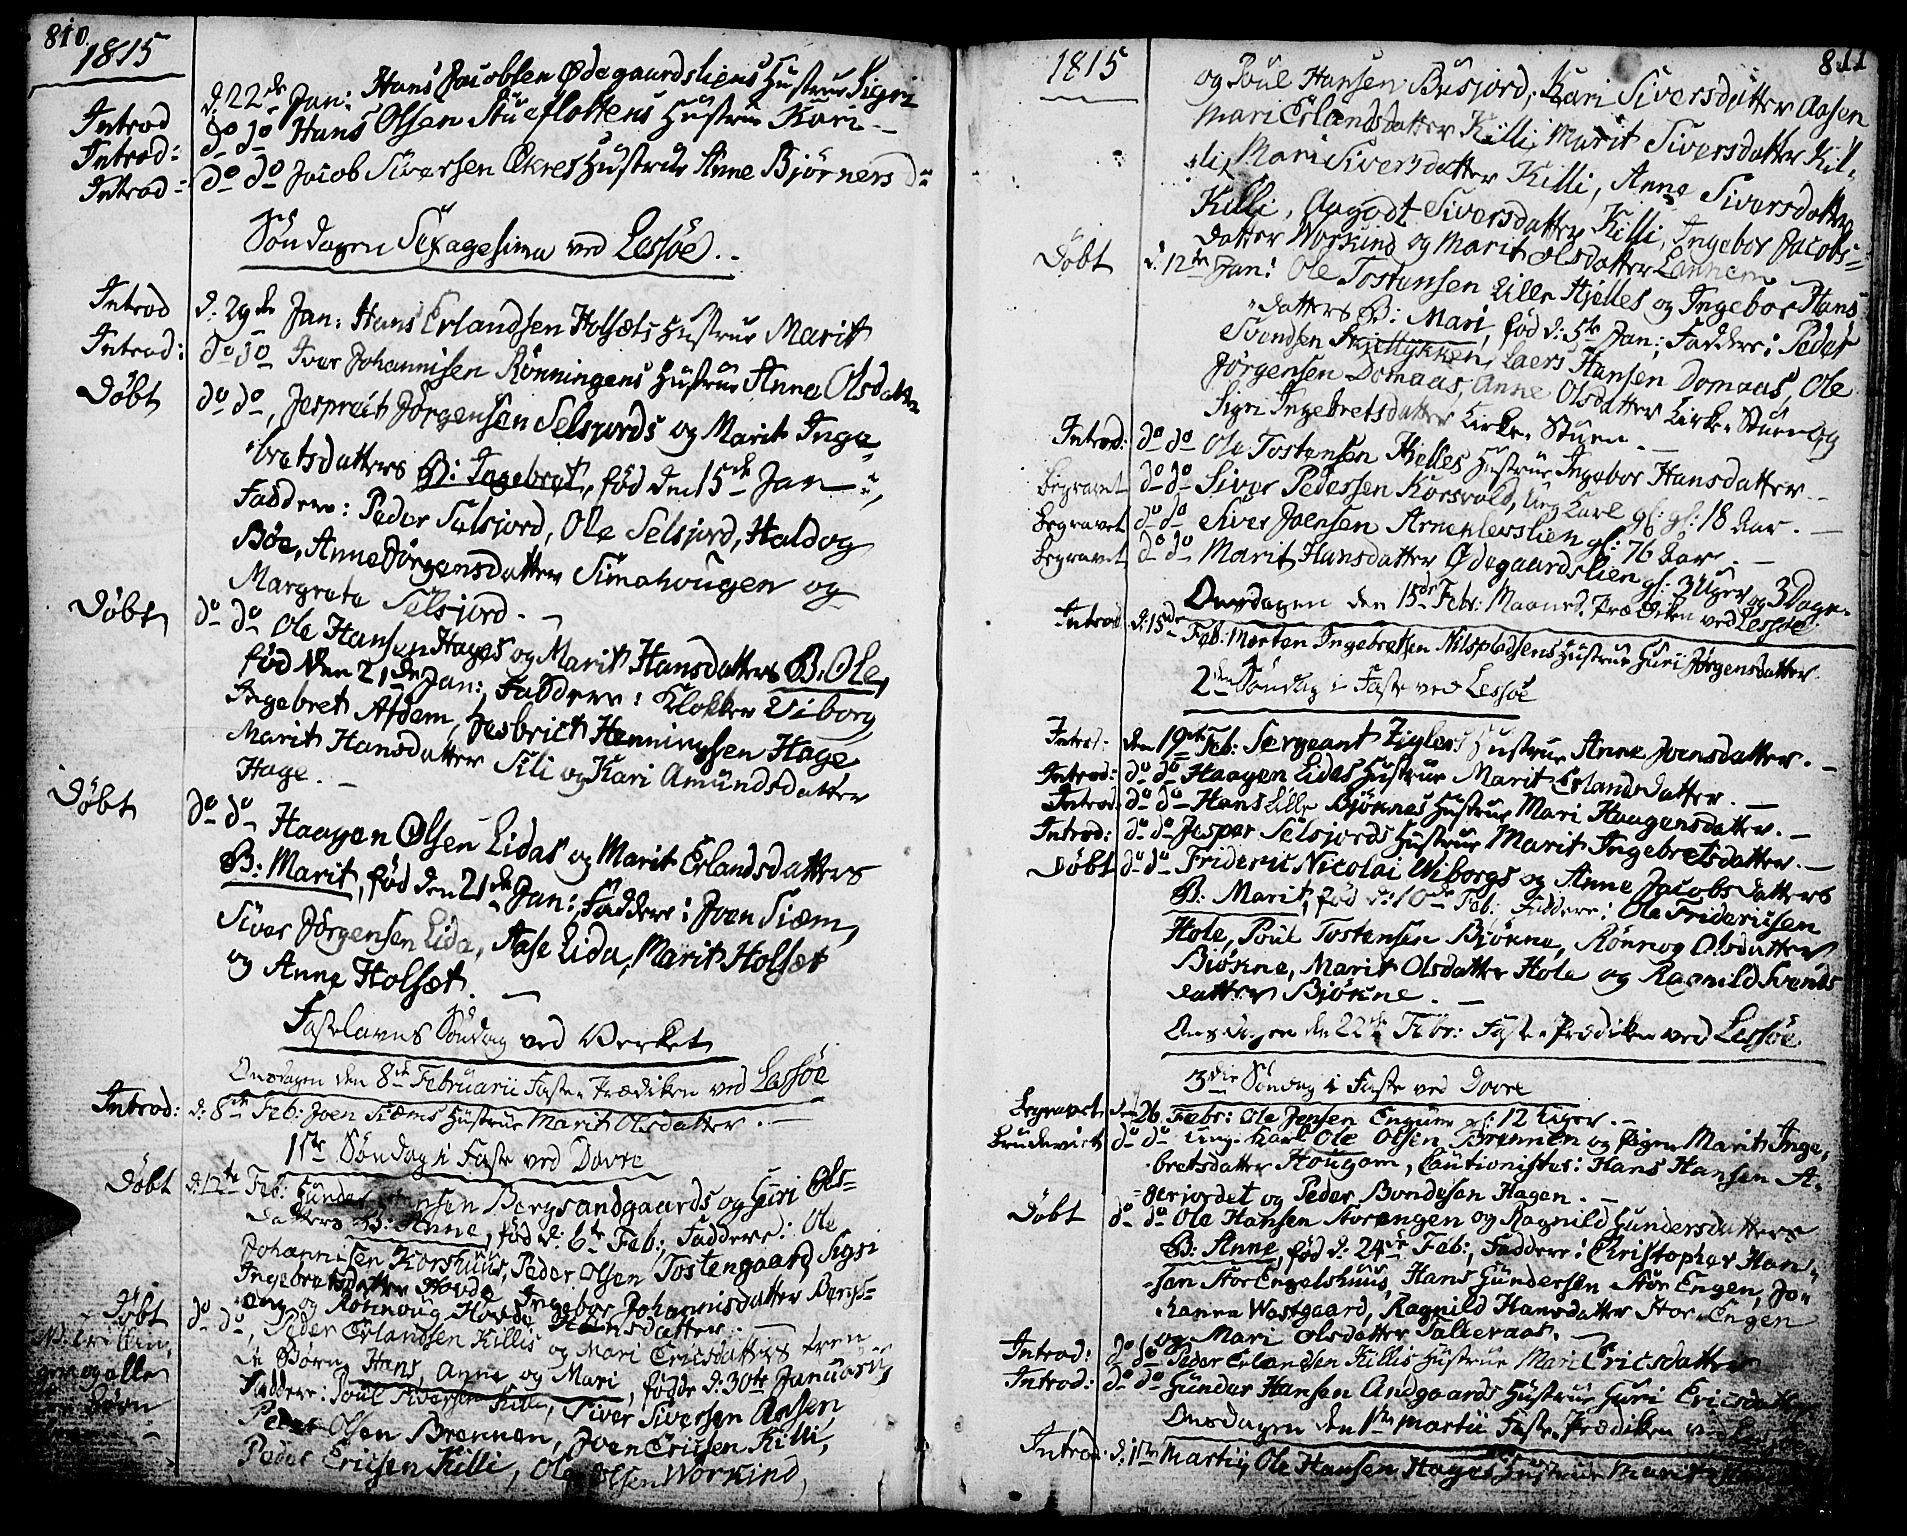 810.
1815
Introd d. 22de Jan: Hans Jacobsen Ødegaardsliens Hustrue Sigri
Introd: do do Hans Olsen Stueflottens Hustrue Kari
Introd: do do Jacob Siversen Ekres Hustrue Anne Bjørnersd:
Søndagen Sexagesima ved Lessøe.
Introd d: 29de Jan: Hans Erlandsen Holsets Hustrue Marit
Introd: do do Iver Johannisen Rønningens Hustrue Anne Olsdatter
Døbt do do, Jesprait Jørgensen Selsjords og Marit Inge
bretsdatters B: Ingebret, fød den 15de Jan:,
Faddere: Peder Selsjord, Ole Selsjord, Haldog
Bøe, Anne Jørgensdatter Simahougen og
Margrete Selsjord.
Døbt do do Ole Hansen Hages og Marit Hansdatters B: Ole,
fød den 21de Jan:, Faddere: Klokker Viborg,
Ingebret Afdem, Jesbrict Henningsen Hage
Marit Hansdatter Sili og Kari Amundsdatter
Hage.
Døbt do do Haagen Olsen Lidas og Marit Erlandsdatters
B: Marit, fød den 21de Jan:, Faddere: Joen Siem,
Siver Jørgensen Lida, Aase Lida, Marit Holset
og Anne Holset.
Fastelavns Søndag ved Verket
Onsdagen den 8de Februarii Faste Prædiken ved Lessøe
Introd: d: 8de Feb: Joen Siems Hustrue Marit Olsdatter.
1ste Søndag i Faste ved Dovre
Døbt d: 12te Feb: Gunder Hansen Bergsandgaards og Guri Ols=
datters B: Anne, fød d: 6te Feb:, Faddere: Ole
Johannesen Korshuus, Peder Olsen Tostengaard, Sigri
Ingebretsdatter Hovde, Ingebor Johannisdatter Bergs=
eng og Rønnoug Hovde Hansdatter.
Døbt do do, Peder Erlandsen Killis og Mari Ericsdatters tven
de Børn Hans, Anne og Mari, fødde d: 30te Januarii,
alle
Børn
Faddere: Poul Siversen Killi, Siver Siversen Aasen
Peder Olsen Brennen, Joen Ericsen Killi,
Peder Ericsen Killi, Ole Olsen Workind,
1815
811
og Poul Hansen Busjord, Kari Siversdatter Aasen
Mari Erlandsdatter Killi, Marit Siversdatter Kil=
li, Mari Siversdatter Killi, Anne Siversdatter
Killi, Aagodt Siversdatter Killi, Ingebor Jacobs=
datter Workind og Marit Olsdatter Lannem
Døbt d: 12te Jan: Ole Tostensen Lille Hjelles og Ingebor Hans
datters B: Mari, fød d: 5te Jan:, Faddere: Peder
Svendsen Skjellykken, Laers Hansen Domaas, Ole
Jørgensen Domaas, Anne Olsdatter Kirke Stuen og
Sigri Ingebretsdatter Kirke Stuen.
Introd: do do Ole Tostensen Hjelles Hustrue Ingebor Hansdatter.
Begravet do do Siver Pedersen Korsvold, ung Karl gl: 18 Aar.
Begravet do do Siver Joensen Arneklevslien gl: 76 Aar.
Begravet do do Marit Hansdatter Ødegaardslien gl: 3 Uger og 3 Dage.
Onsdagen den 15de Febr: Maaned. Prædiken ved Lessøe
Introd d: 15de Feb: Morten Ingebretsen Nilspladsens Hustrue Guri Jørgensdatter
2den Søndag i Faste ved Lessøe
Introd: den 19de Feb: Sergeant Ziglers Hustrue Anne Joensdatter.
Introd: do do Haagen Lidas Hustrue Marit Erlandsdatter.
Introd: do do Hans Lille Bjøknes Hustrue Mari Haagensdatter.
Introd: do do Jesper Selsjords Hustrue Marit Ingebretsdatter.
Døbt do do Frideric Nicolai Wiborgs og Anne Jacobsdatters
B: Marit, fød d: 10de Feb: Faddere: Ole Fridericsen
Hole, Poul Tostensen Bjøkne, Rønnog Olsdatter
Bjøkne, Marit Olsdatter Hole og Ragnild Svends
datter Bjøkne.
Onsdagen den 22de Febr: Faste Prædiken ved Lessøe.
3die Søndag i Faste ved Dovre
Begravet den 26 Febr: Ole Jensen Engum gl: 12 Uger.
Brudeviet do do ung: Karl Ole Olsen Brennen og Pigen Marit Inge=
bretsdatter Hougom, Cautionister: Hans Hansen A=
gerjordet og Peder Bondesen Hagen.
Døbt do do Ole Hansen Storengen og Ragnild Gundersdatters
B: Anne, fød d: 24de Feb:, Faddere: Christopher Han=
sen Stor Engelshuus, Hans Gundersen Stor Engen, Jo=
hanna Wastgaard, Ragnild Hansdatter Stor Engen
og Mari Olsdatter Talleraas.
Introd: do do Peder Erlandsen Killis Hustrue Mari Ericsdatter
Introd: do do Gunder Hansen Andgaards Hustrue Guri Ericsdatter
Onsdagen den 1ste Martii Faste Prædiken ved Lessøe
Introd: d: 1ste Martii, Ole Hansen Hages Hustrue Marit